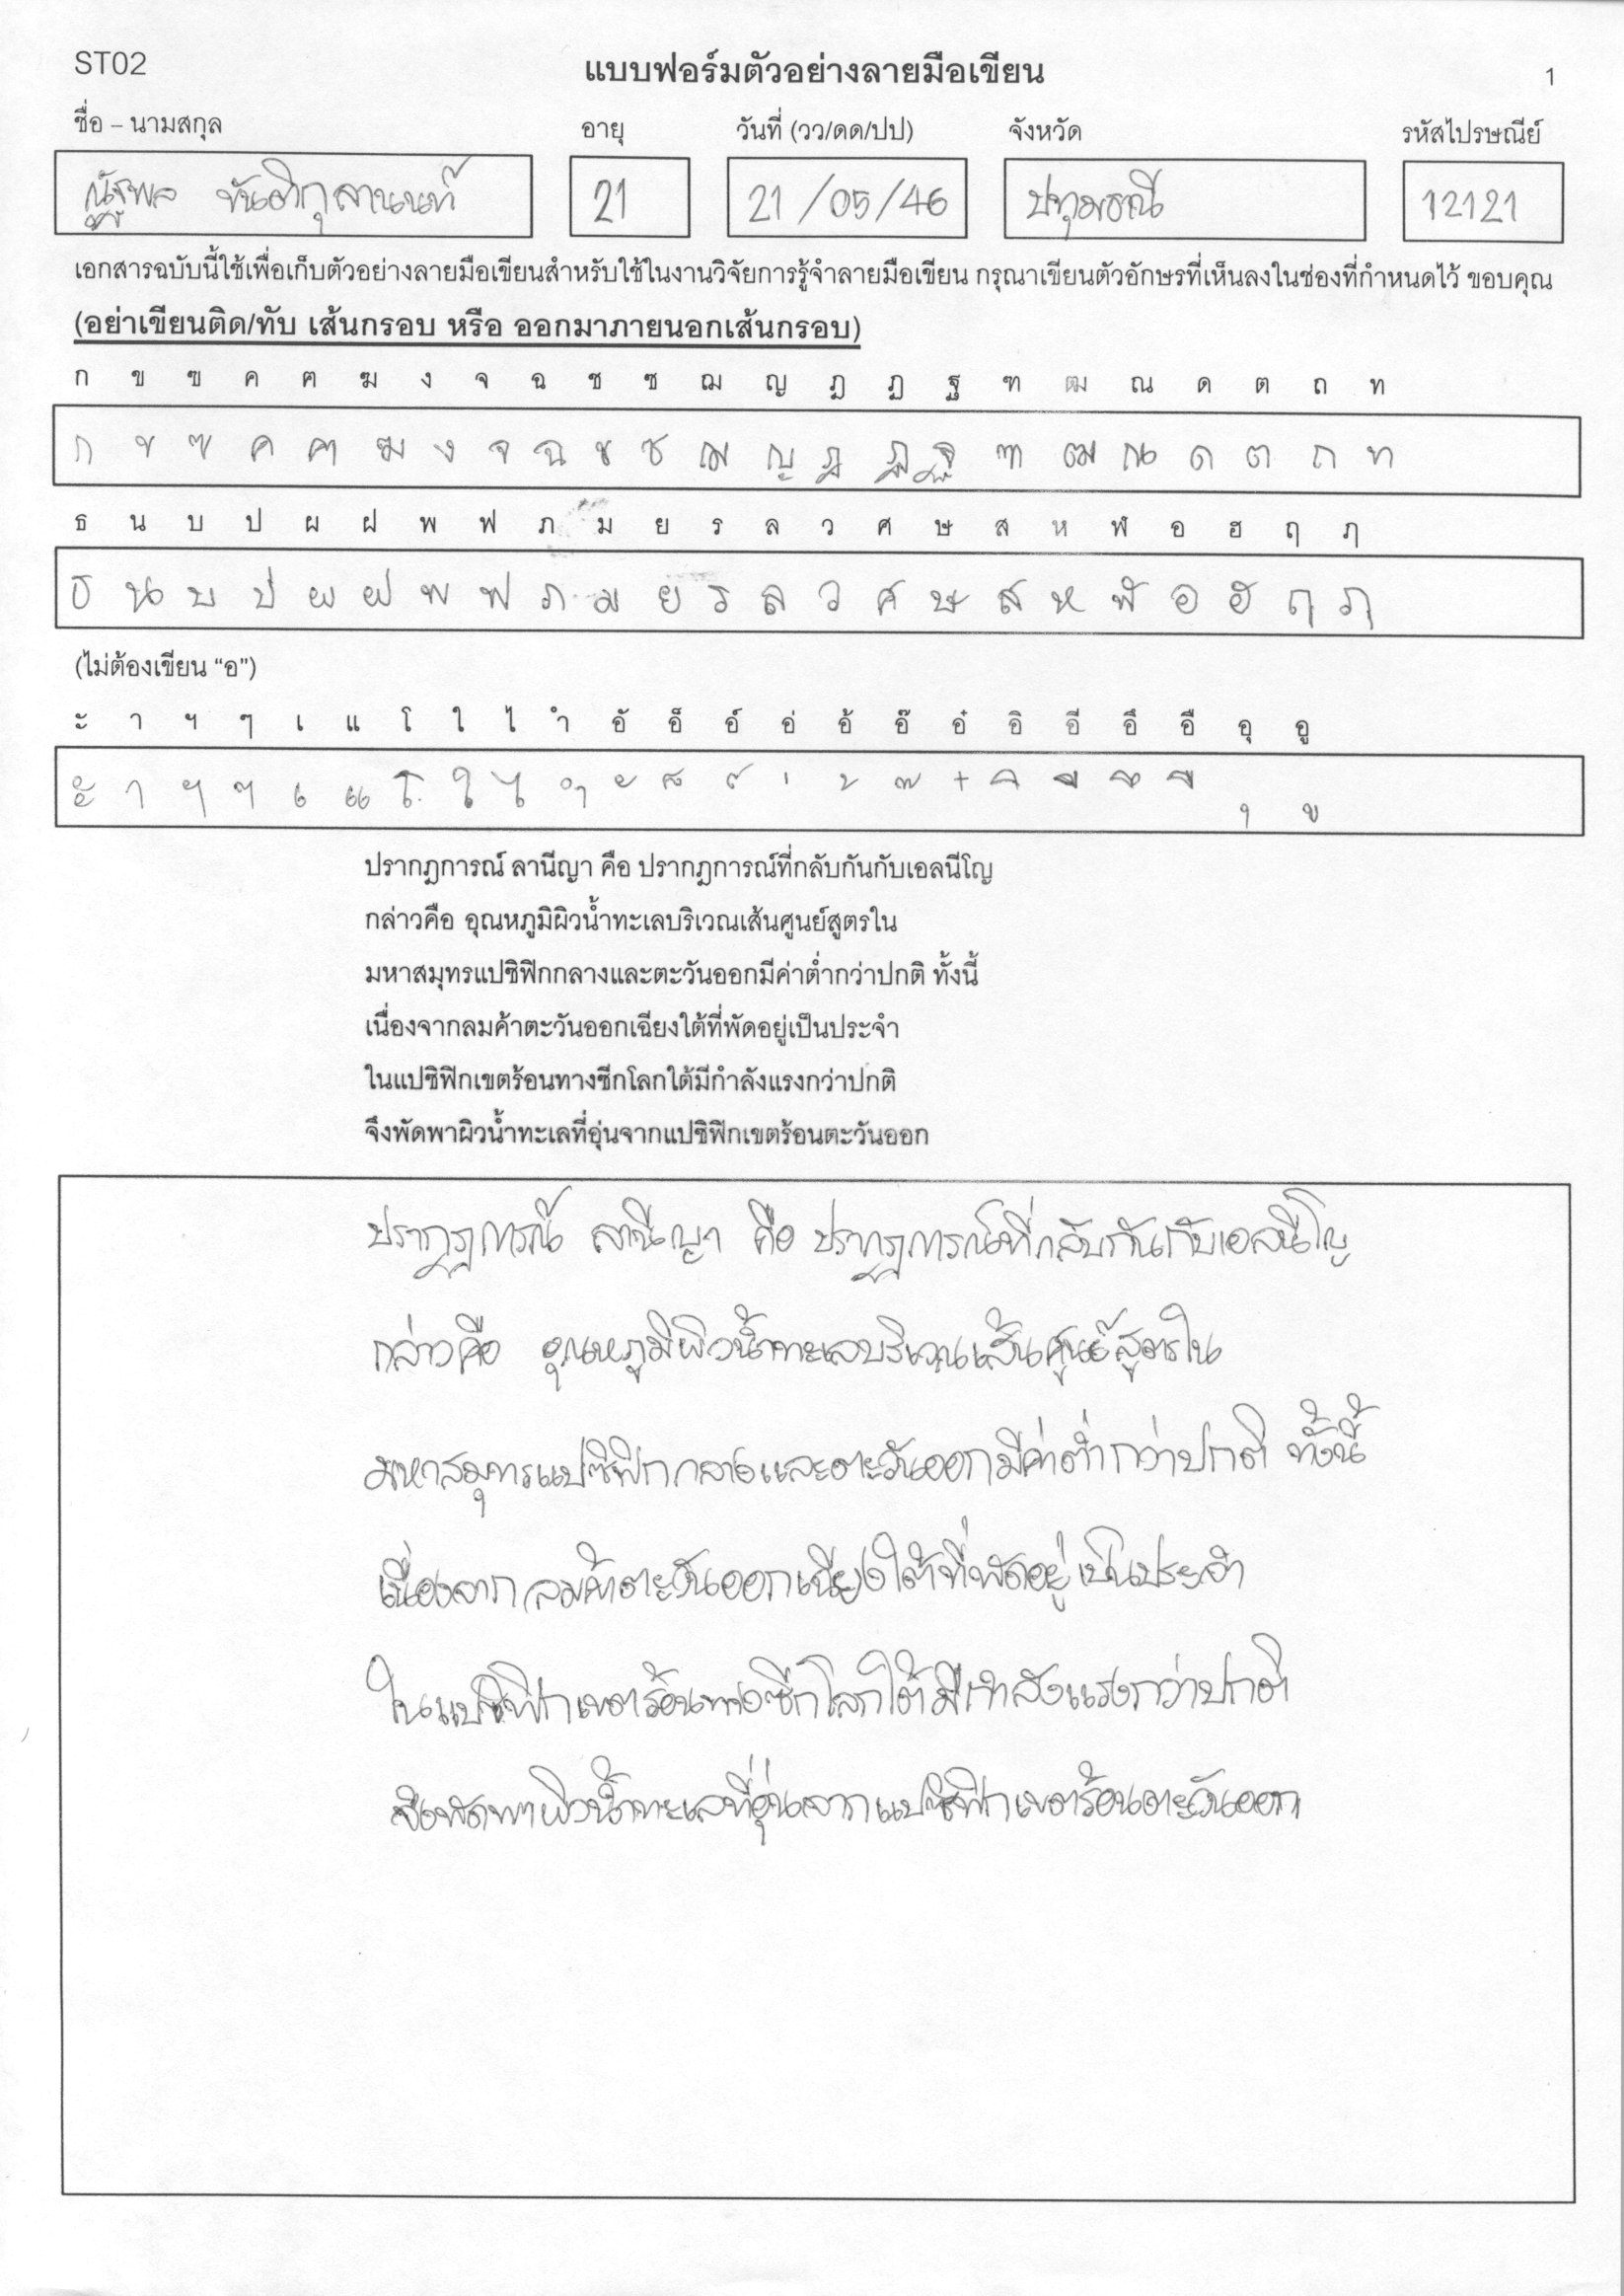 ST02
แบบฟอร์มตัวอย่างลายมือเขียน
1
ชื่อ – นามสกุล อายุ วันที่ (วว/ดด/ปป) จังหวัด รหัสไปรษณีย์
ณัฐพล 21 21/05/46 ปทุมธณี 12121
เอกสารฉบับนี้ใช้เพื่อเก็บตัวอย่างลายมือเขียนสำหรับใช้ในงานวิจัยการรู้จำลายมือเขียน กรุณาเขียนตัวอักษรที่เห็นลงในช่องที่กำหนดไว้ ขอบคุณ
(อย่าเขียนติด/ทับ เส้นกรอบ หรือ ออกมาภายนอกเส้นกรอบ)
ก ข ฃ ค ฅ ฆ ง จ ฉ ช ซ ฌ ญ ฎ ฏ ฐ ฑ ฒ ณ ด ต ถ ท
ก ข ฃ ค ฅ ฆ ง จ ฉ ช ซ ฌ ญ ฎ ฏ ฐ ฑ ฒ ณ ด ต ถ ท
ธ น บ ป ผ ฝ พ ฟ ภ ม ย ร ล ว ศ ษ ส ห ฬ อ ฮ ฤ ฦ
ธ น บ ป ผ ฝ พ ฟ ภ ม ย ร ล ว ศ ษ ส ห ฬ อ ฮ ฤ ฦ
(ไม่ต้องเขียน “อ”)
ะ า ฯ ๆ เ แ โ ใ ไ ำ อั อ็ อ์ อ่ อ้ อ๊ อ๋ อิ อี อึ อื อุ อู
ะ า ฯ ๆ เ แ โ ใ ไ ำ ั ็ ์ ่ ้ ๊ ๋ ิ ี ึ ื ุ ู
ปรากฏการณ์ ลานีญา คือ ปรากฏการณ์ที่กลับกันกับเอลนีโญ
กล่าวคือ อุณหภูมิผิวน้ำทะเลบริเวณเส้นศูนย์สูตรใน
มหาสมุทรแปซิฟิกกลางและตะวันออกมีค่าต่ำกว่าปกติ ทั้งนี้
เนื่องจากลมค้าตะวันออกเฉียงใต้ที่พัดอยู่เป็นประจำ
ในแปซิฟิกเขตร้อนทางซีกโลกใต้มีกำลังแรงกว่าปกติ
จึงพัดพาผิวน้ำทะเลที่อุ่นจากแปซิฟิกเขตร้อนตะวันออก
ปรากฏการณ์ ลานีญา คือ ปรากฏการณ์ที่กลับกันกับเอลนีโญ
กล่าวคือ อุณหภูมิผิวน้ำทะเลบริเวณเส้นศูนย์สูตรใน
มหาสมุทรแปซิฟิกกลางและตะวันออกมีค่าต่ำกว่าปกติ ทั้งนี้
เนื่องจากลมค้าตะวันออกเฉียงใต้ที่พัดอยู่เป็นประจำ
ในแปซิฟิกเขตร้อนทางซีกโลกใต้มีกำลังแรงกว่าปกติ
จึงพัดพาผิวน้ำทะเลที่อุ่นจากแปซิฟิกเขตร้อนตะวันออก